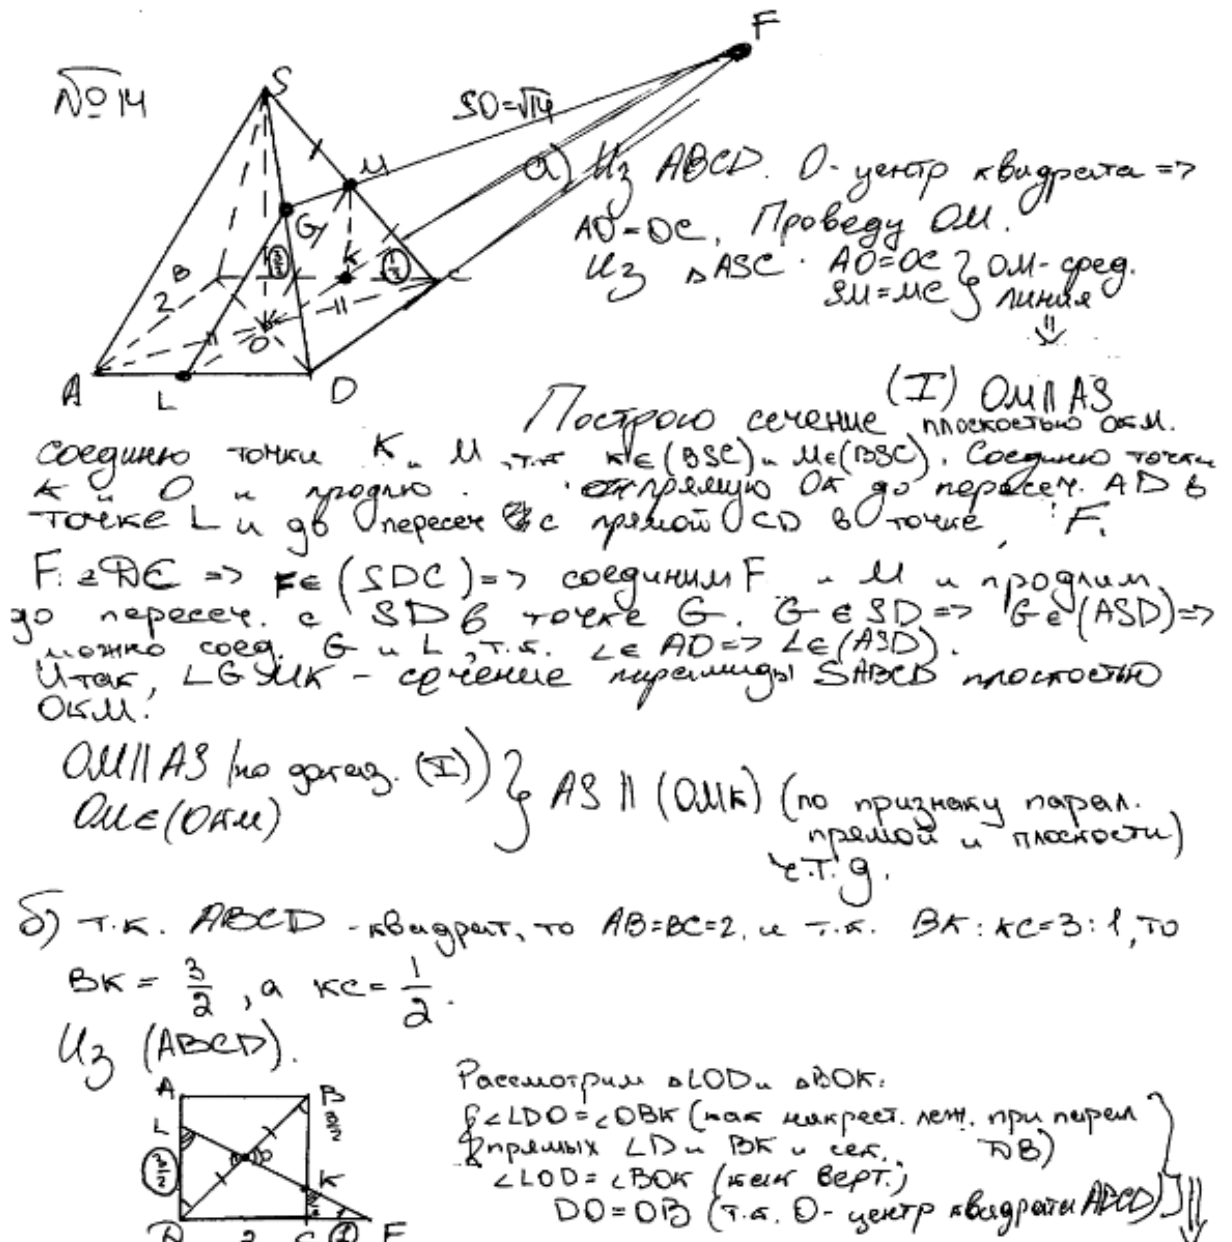 №14
S
F
SO=√14
M
G
α
B
K
C
2
O
A
L
D
Из ABCD. O - центр квадрата =>
AO=OC, Проведу OM.
Из △ASC. AO=OC } OM - сред.
SM=MC } линия
⇓
(I) OM || AS
Построю сечение плоскостью OKM.
Соединю точки K и M, т.к. K∈(BSC) и M∈(BSC). Соединю точки
K и O и продлю прямую OK до пересеч. AD в
точке L и до пересеч с прямой CD в точке F.
F∈DC => F∈(SDC) => соединим F и M и продлим
до пересеч. с SD в точке G. G∈SD => G∈(ASD) =>
можно соед. G и L, т.к. L∈AD => L∈(ASD).
Итак, LGMK - сечение пирамиды SABCD плоскостью
OKM.
OM || AS (по доказ. (I)) } AS || (OMK) (по признаку парал.
OM∈(OKM) прямой и плоскости)
ч.т.д.
б) т.к. ABCD - квадрат, то AB=BC=2, и т.к. BK:KC=3:1, то
BK = 3/2, а KC = 1/2.
Из (ABCD).
A B
L 3/2
3/2 O
K
1/2
D 2 C 1 F
Рассмотрим △LOD и △BOK:
∠LDO=∠OBK (как накрест. леж. при парал
прямых LD и BK и сек. DB)
∠LOD=∠BOK (как верт.)
DO=OB (т.к. O - центр квадрата ABCD)
⇓